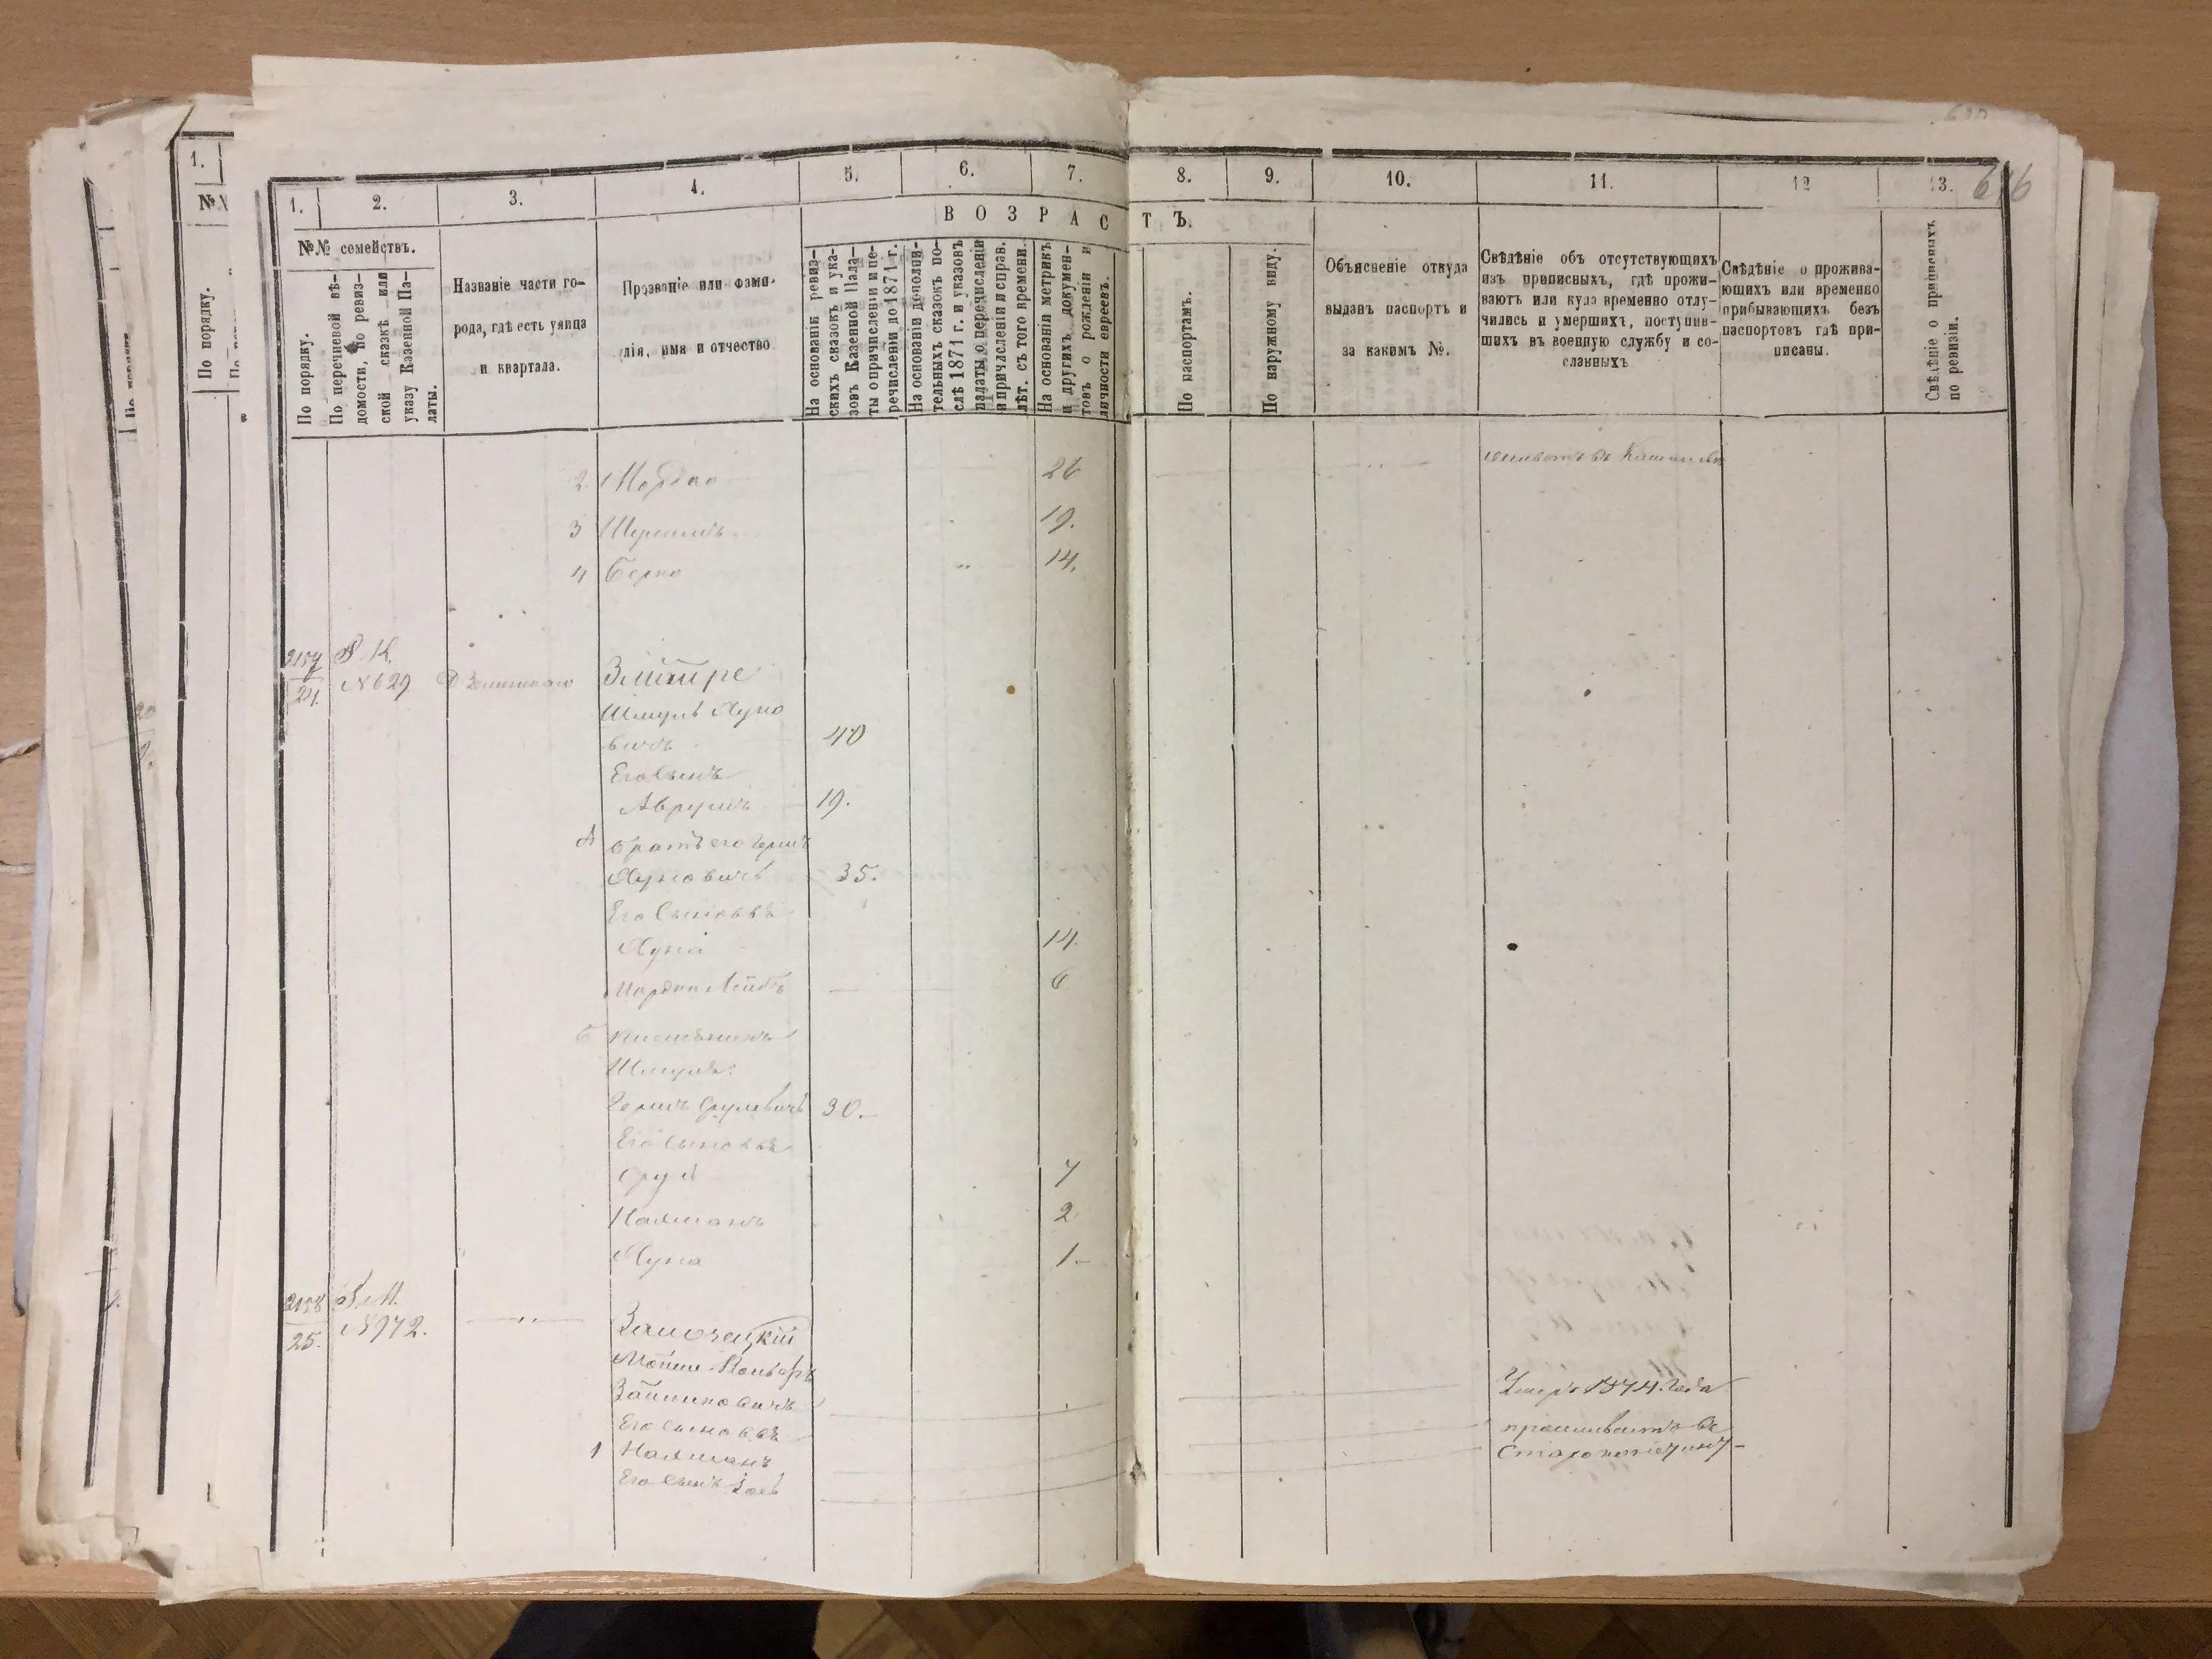 1.
2.
3.
4.
5.
6.
7.
8.
9.
10.
11.
12
13.
ВОЗРАСТЪ.
№№ семействъ.
По порядку.
По перечневой вѣ-
домости, по ревиз-
ской сказкѣ или
указу Казенной Па-
латы.
Названіе части го-
рода, гдѣ есть улица
и квартала.
Прозваніе или фами-
лія, имя и отчество
На основаніи ревиз-
скихъ сказокъ и ука-
зовъ Казенной Пала-
ты о причисленіи и пе-
речисленіи до 1871 г.
На основаніи дополни-
тельныхъ сказокъ по-
слѣ 1871 г. и указовъ
палаты о перечисленіи
и причисленіи и справ.
лѣт. съ того времени.
На основаніи метрикъ
и другихъ докумен-
товъ о рожденіи и
личности евреевъ.
По паспортамъ.
По наружному виду.
Объясненіе откуда
выданъ паспортъ и
за какимъ №.
Свѣдѣніе объ отсутствующихъ
изъ приписныхъ, гдѣ прожи-
ваютъ или куда временно отлу-
чились и умершихъ, поступив-
шихъ въ военную службу и со-
сланныхъ
Свѣдѣніе о прожива-
ющихъ или временно
прибывающихъ безъ
паспортовъ гдѣ при-
писаны.
Свѣдѣніе о приписныхъ
по ревизіи.
2 Мордко 26
3 19.
4 Берко 14.
2157 Р. К.
24. №629
Шмуль Луно
вичъ 40
Его Сынъ
Аврумъ 19.
А Братъ его Герш
Луновичъ 35.
Его Сыновья
Луна 14.
Мордко Лейбъ 6
Б
Шмуля:
Гершъ Срулевичъ 30.
Его Сыновья
Сруль 7
Нахманъ 2
Луна 1
2158
25. №972.
Замочецкій
Его сыновья
1 Нахманъ
Его Сынъ
Умеръ 1874. года
проживаетъ въ